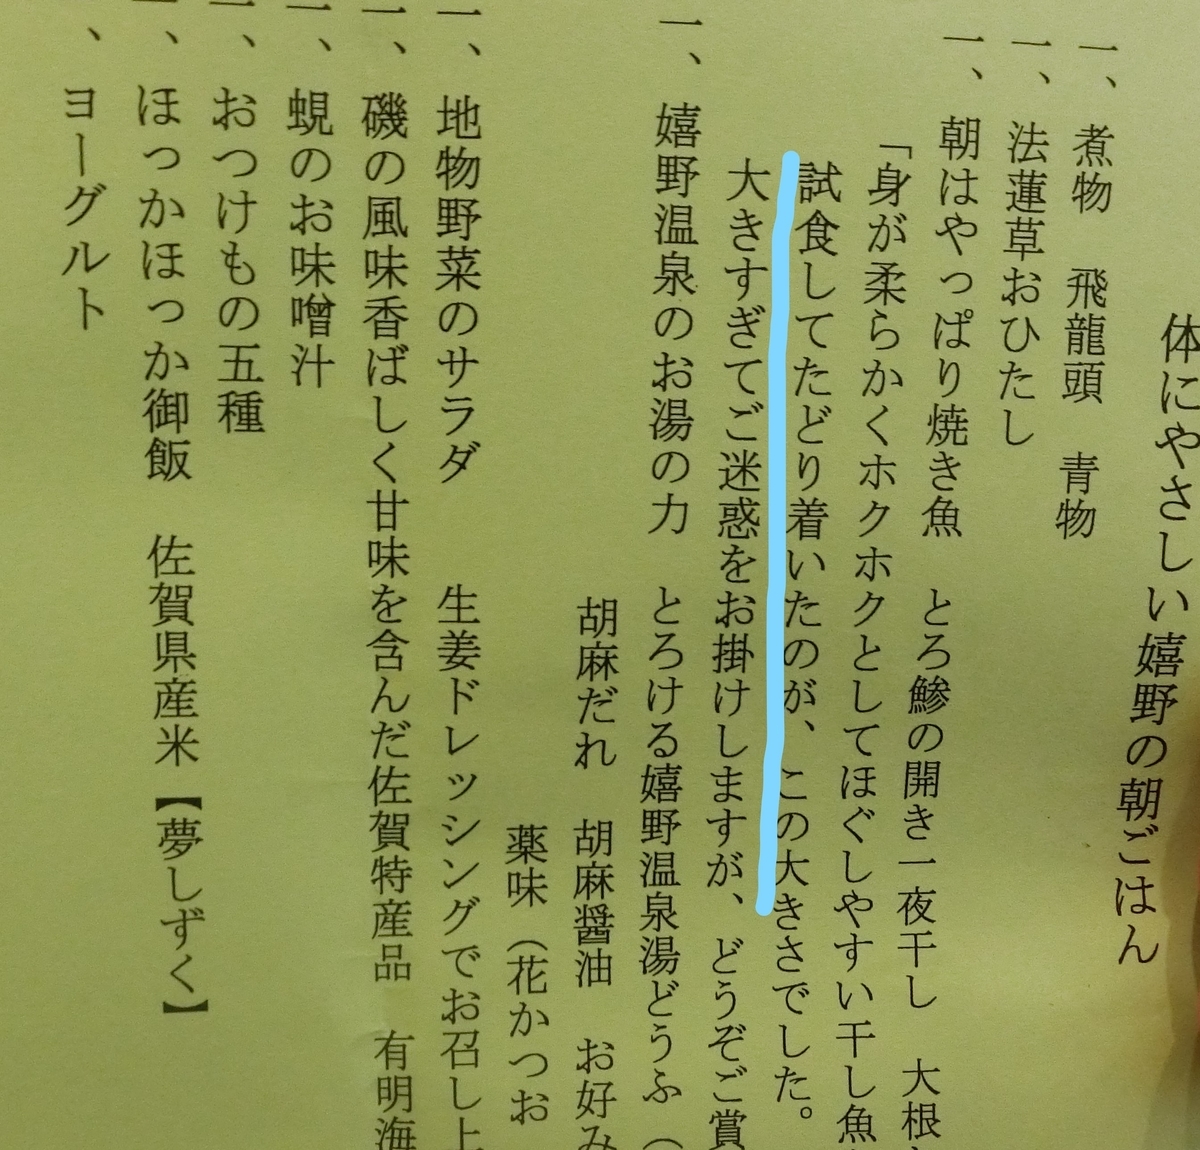 体にやさしい嬉野の朝ごはん
一、煮物　飛龍頭　青物
一、法蓮草おひたし
一、朝はやっぱり焼き魚　とろ鯵の開き一夜干し　大根
「身が柔らかくホクホクとしてほぐしやすい干し魚
試食してたどり着いたのが、この大きさでした。
大きすぎてご迷惑をお掛けしますが、どうぞご賞
一、嬉野温泉のお湯の力　とろける嬉野温泉湯どうふ（
胡麻だれ　胡麻醤油　お好み
薬味（花かつお
一、地物野菜のサラダ　生姜ドレッシングでお召し上
一、磯の風味香ばしく甘味を含んだ佐賀特産品　有明海
一、蜆のお味噌汁
一、おつけもの五種
一、ほっかほっか御飯　佐賀県産米【夢しずく】
、ヨーグルト